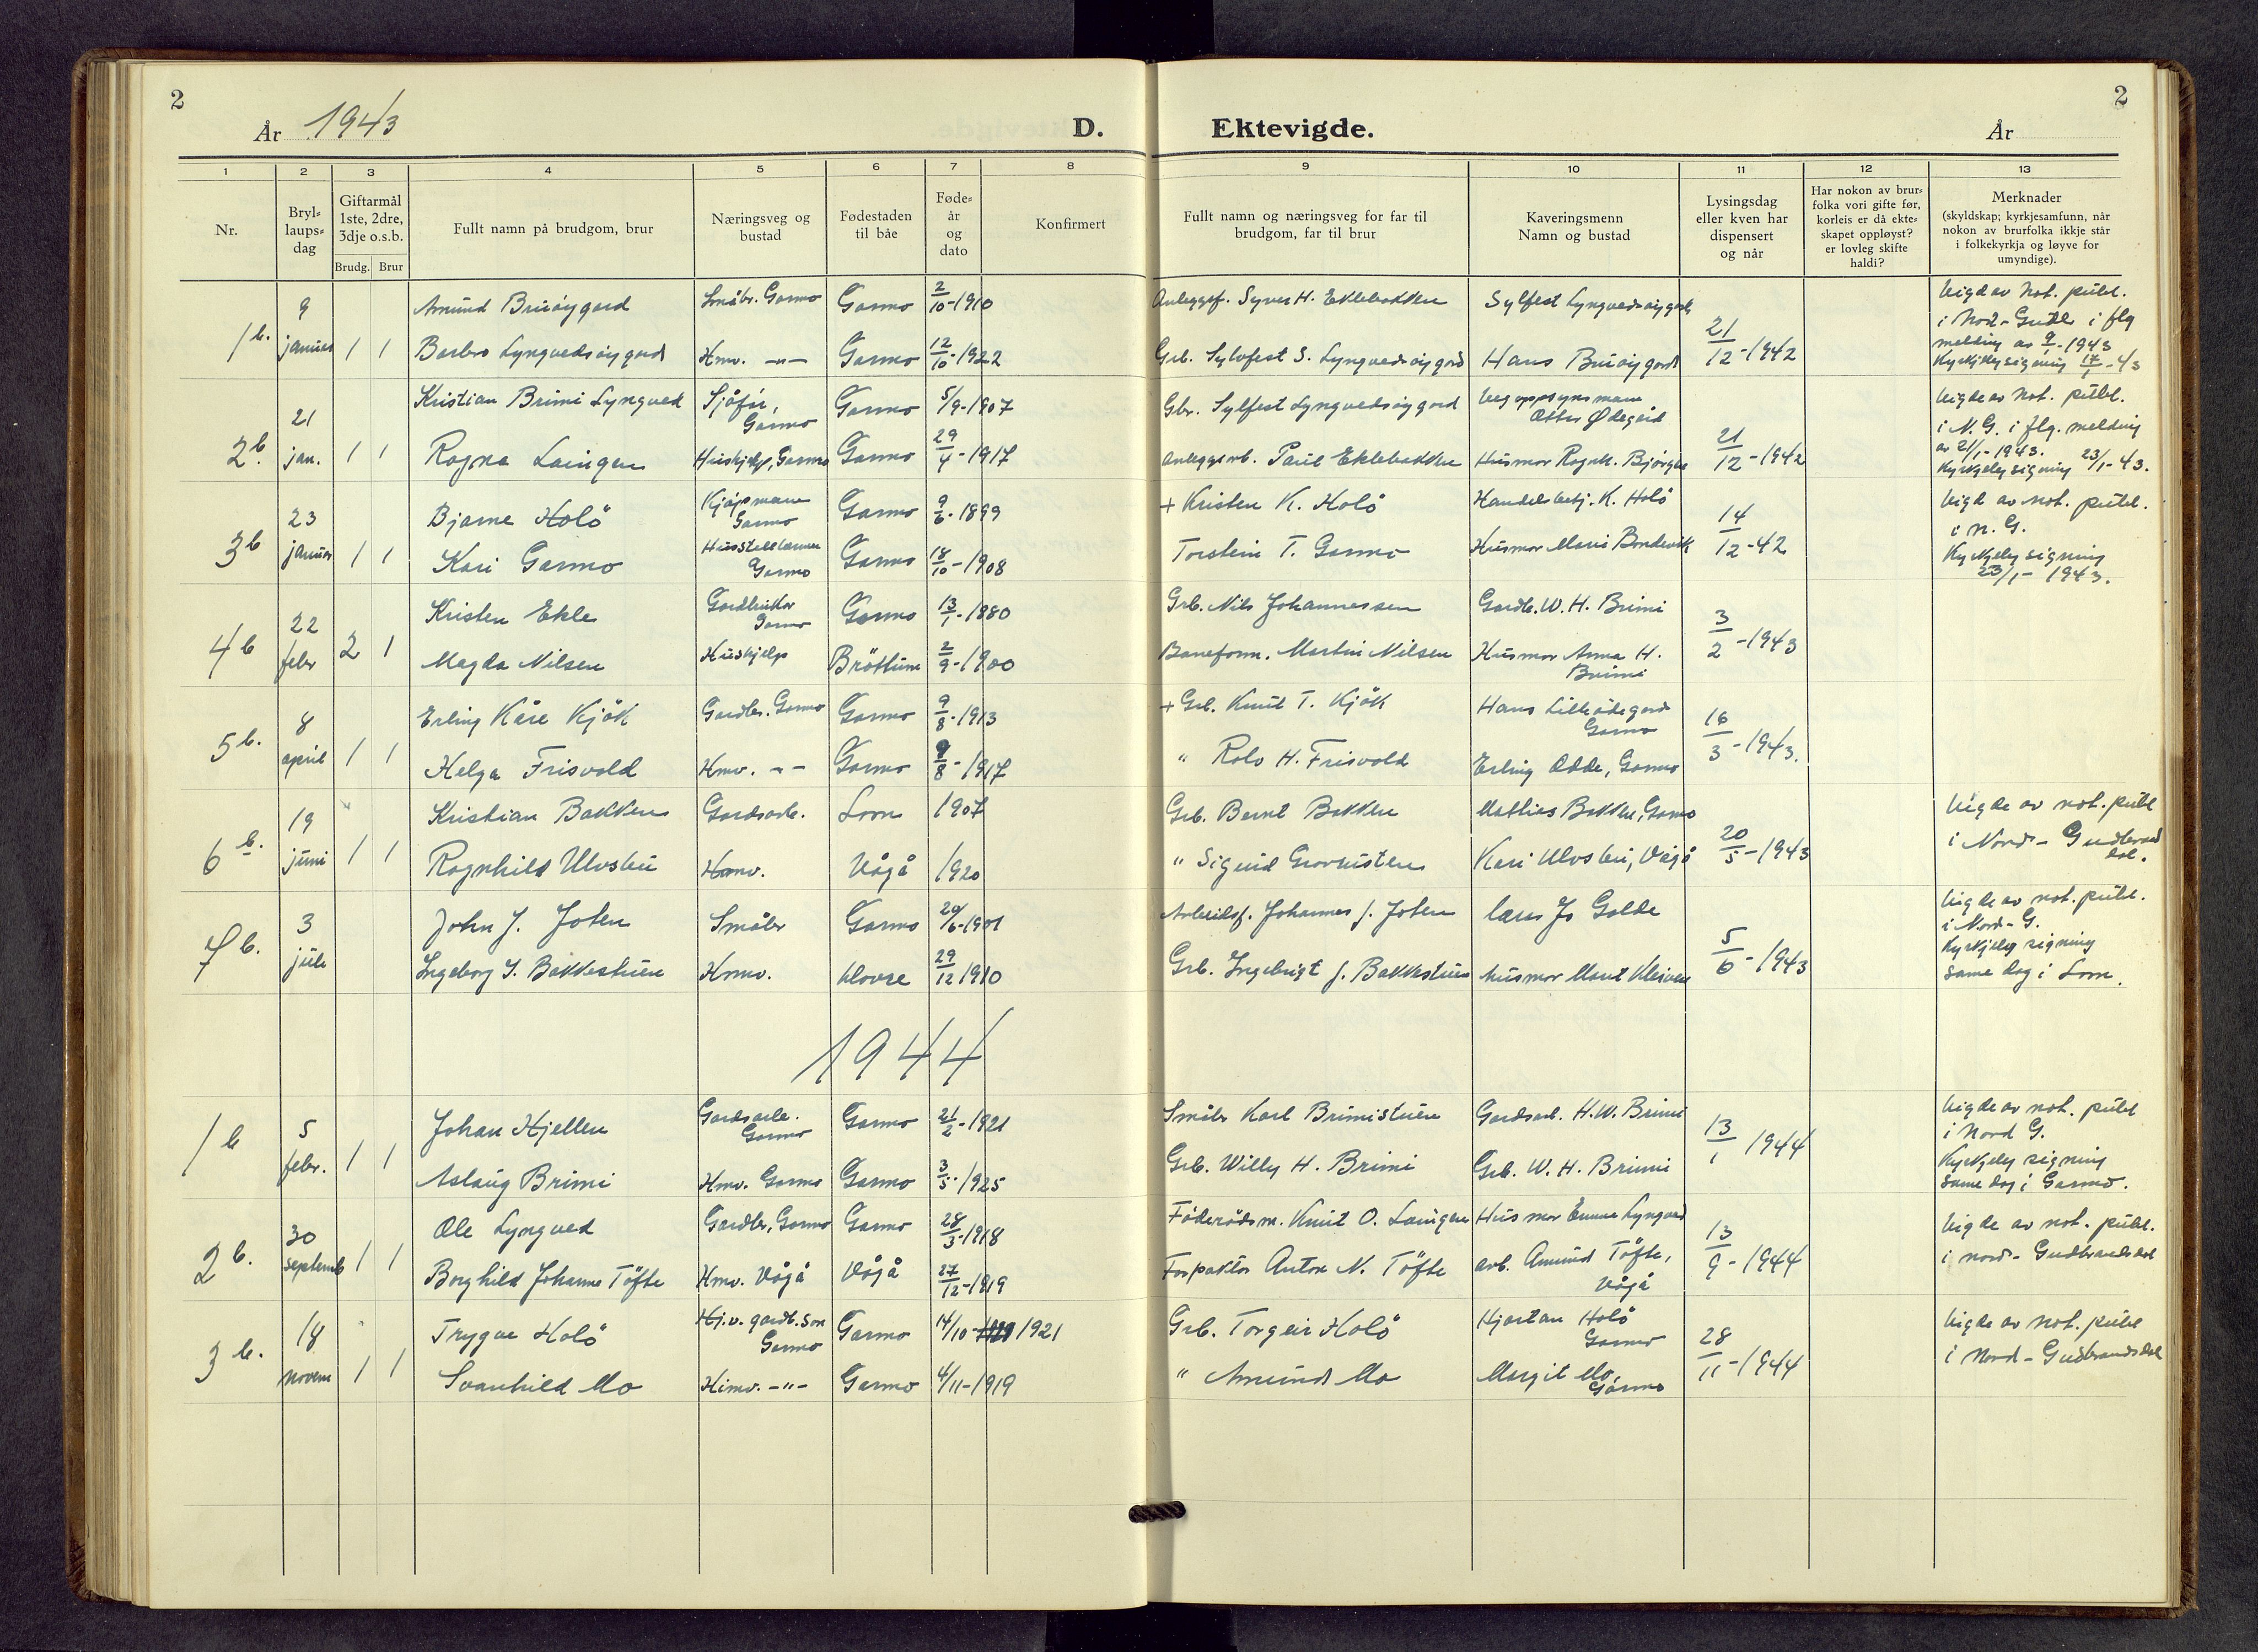 2
År 1943
D.
Ektevigde.
År
2
1
2
3
4
5
6
7
8
9
10
11
12
13
Nr.
Bryl-
laups-
dag
Giftarmål
1ste, 2dre,
3dje o.s.b.
Brudg. Brur
Fullt namn på brudgom, brur
Næringsveg og
bustad
Fødestaden
til båe
Føde-
år
og
dato
Konfirmert
Fullt namn og næringsveg for far til
brudgom, far til brur
Kaveringsmenn
Namn og bustad
Lysingsdag
eller kven har
dispensert
og når
Har nokon av brur-
folka vori gifte før,
korleis er då ekte-
skapet oppløyst?
er lovleg skifte
haldi?
Merknader
(skyldskap; kyrkjesamfunn, når
nokon av brurfolka ikkje står
i folkekyrkja og løyve for
umyndige).
1 b. 9 januar 1 1
Amund Bruøygard Småbr. Garmo Garmo 2/10-1910 Anleggsf. Syver H. Eklebakken Sylfest Lyngvedsøygard
Barbro Lyngvedsøygard Hmv. -"- Garmo 12/10-1922 Grb. Sylvfest S. Lyngvedsøygard Hans Bruøygard 21/12-1942
Vigde av Not. publ.
i Nord-Gudbr i flg
melding av 9/1-1943
Kyrkjeleg signing 17/1-43
2 b. 21 jan. 1 1
Kristian Brimi Lyngved Sjåfør, Garmo Garmo 5/9-1907 Gbr. Sylfest Lyngvedsøygard Vegoppsynsmann Ødegård
Ragna Laingen Hushjelp, Garmo Garmo 29/4-1917 Anleggsarb. Paul Eklebakken Husmor Ragnh. 21/12-1942
Vigde av Not. publ.
i N. G. i flg. melding
av 21/1-1943.
Kyrkjeleg signing 23/1-43.
3 b 23 januar 1 1
Bjarne Holö Kjøpmann Garmo Garmo 9/6-1899 + Kristen K. Holö Handelsbetj. K. Holö
Kari Garmo Husstellærar Garmo Garmo 18/10-1908 Torstein T. Garmo Husmor Mari Bondevik 14/12-42
Vigde av not. publ.
i N. G.
Kyrkjeleg signing
23/1-1943.
4 b 22 febr 2 1
Kristen Ekle Gardbrukar Garmo Garmo 13/1-1880 Grb. Nils Johannessen Gardb. W. H. Brimi
Magda Nilsen Hushjelp Bröttum 2/9-1900 Baneform. Martin Nilsen Husmor Anna H. Brimi 3/2-1943
5 b. 8 april 1 1
Erling Kåre Kjök Gardbr. Garmo Garmo 9/8-1913 + Grb. Knut T. Kjök Hans Lilleödegard Garmo
Helga Frisvold Hmv. -"- Garmo 9/8-1917 " Rolv H. Frisvold Erling Odde, Garmo 16/3-1943.
6 b. 19 juni 1 1
Kristian Bakken Gardsarb. Lom 1907 Grb. Bernt Bakken Mathias Bakken, Garmo
Ragnhild Ulvsbu Hmv. Vågå 1920 " Sigurd Kari Ulvsbu, Vågå 20/5-1943
Vigde av not. publ
i Nord-Gudbrands
dal.
7 b. 3 juli
John J. Joten Småbr Garmo 20/6-1901 Arbeidsf. Johannes J. Joten Lars Jo Golde
Ingeborg I. Bakkestuen Hmv. Dovre 29/12 1910 Grb. Ingebrigt J. Bakkestuen Husmor Marit Kleiven 5/6-1943
Vigde av not. publ.
i Nord-G.
Kyrkjeleg signing
same dag i Lom.
1944
1 b 5 febr. 1 1
Johan Hjellen Gardsarb. Garmo Garmo 21/2-1921 Småbr Karl Brimistuen Gardsarb. H.W. Brimi
Aslaug Brimi Hmv. Garmo Garmo 3/5-1925 Grb. Willy H. Brimi Grb. W. H. Brimi 13/1 1944
Vigde av not. publ
i Nord G.
Kyrkjeleg signing
same dag i Garmo.
2 b. 30 septemb 1 1
Ole Lyngved Gardbr, Garmo Garmo 28/3-1918 Föderådsm. Knut O. Laingen Husmor Emma Lyngved
Borghild Johanne Töfte Hmv. Vågå Vågå 27/12-1919 Forpaktar Anton N. Töfte arb. Amund Töfte, Vågå 13/9-1944
Vigde av not. publ.
i nord-Gudbrandsdal
3 b. 18 novem 1 1
Trygve Holö Hj.v. gardb.son Garmo Garmo 14/10- 1921 Grb. Torgeir Holö Kjartan Holö Garmo
Svanhild Mo Himv. -"- Garmo 4/11-1919 " Amund Mo Margit Mo, Garmo 28/11-1944
Vigde av not. publ
i Nord-Gudbrandsdal